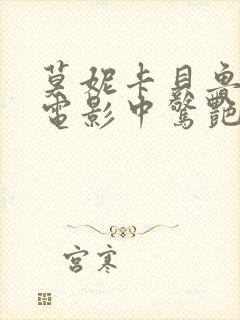 莫妮卡貝魯
電影中驚艷
宮寒